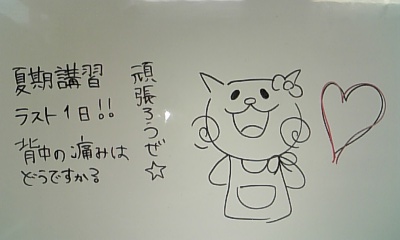 夏期講習
ラスト1日!!
背中の痛みは
どうですか?
頑張ろうぜ☆